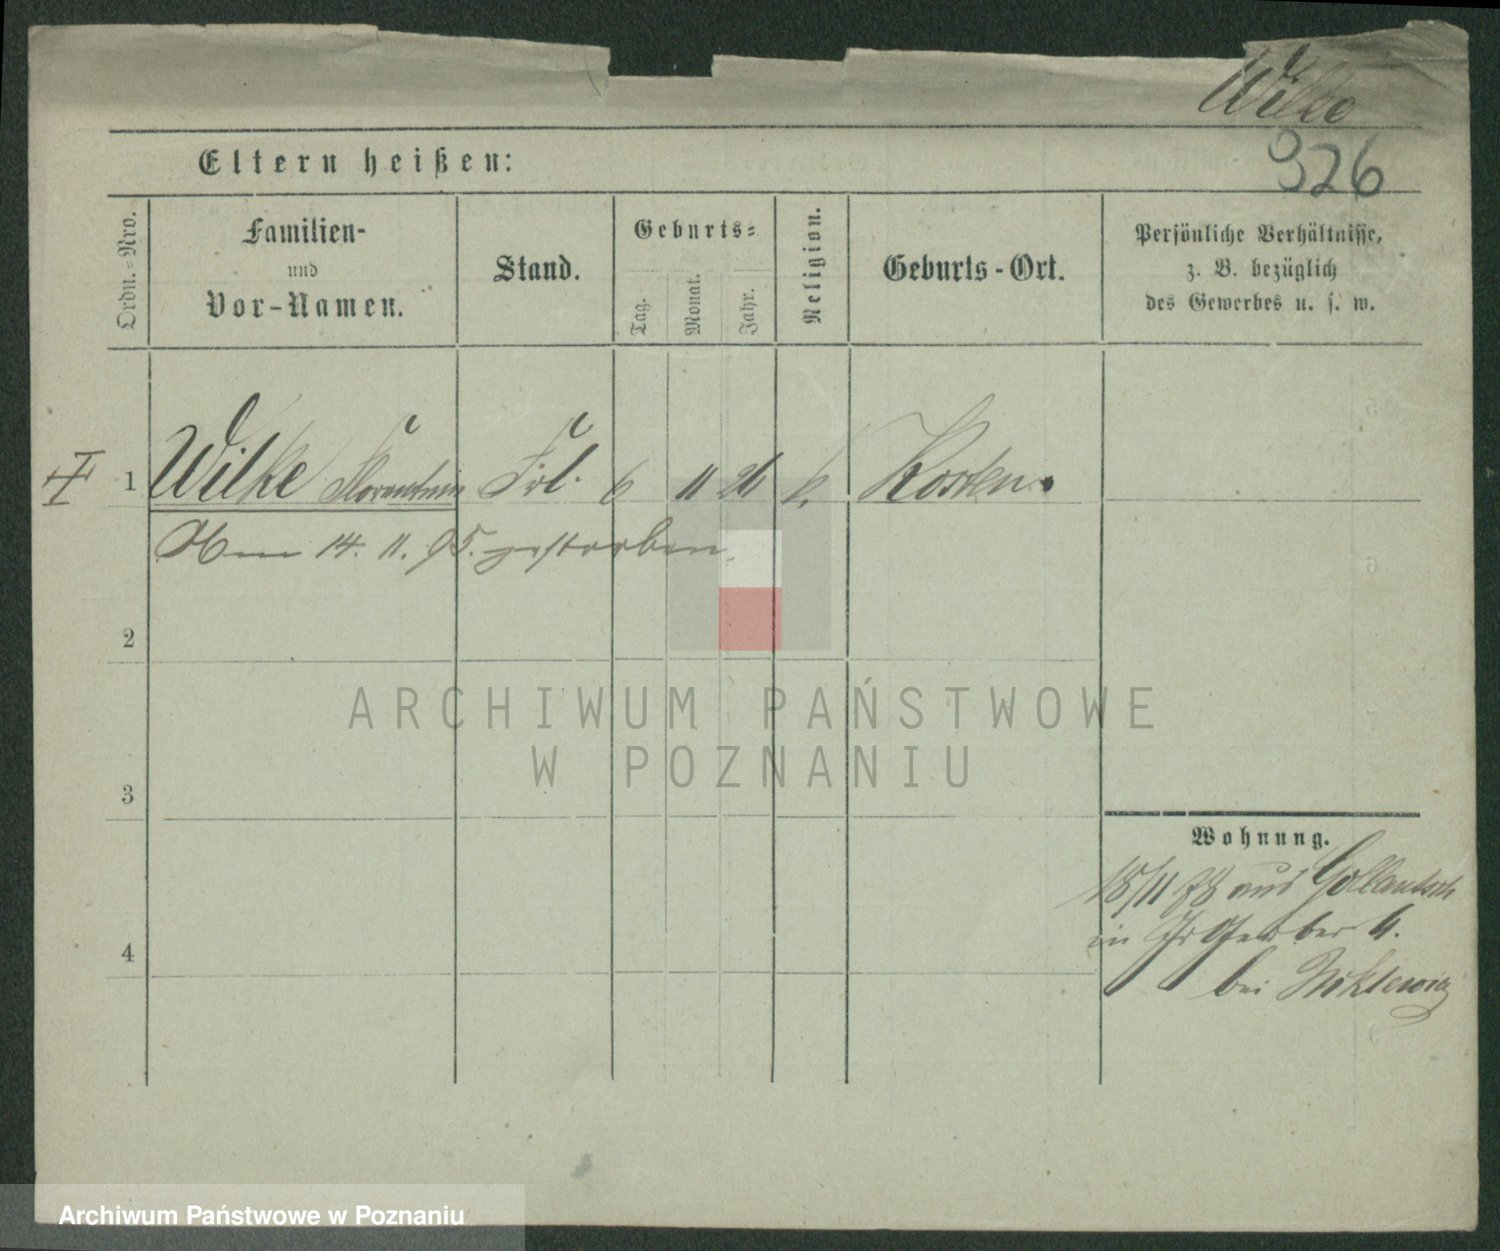 Wilke
926
Eltern heißen:
Ordn.=Nro.
Familien-
und
Vor-Namen.
Stand.
Geburts=
Tag.
Monat.
Jahr.
Religion.
Geburts-Ort.
Persönliche Verhältnisse,
z. B. bezüglich
des Gewerbes u. s. w.
1 Wilke Florentine Frl. 6 11 26 k. Kosten.
Am 14. 11. 95. gestorben.
2
ARCHIWUM PAŃSTWOWE
W POZNANIU
3
Wohnung.
15/11 78 aus Gollantsch
in Gr Gerber 4.
4
bei
Archiwum Państwowe w Poznaniu